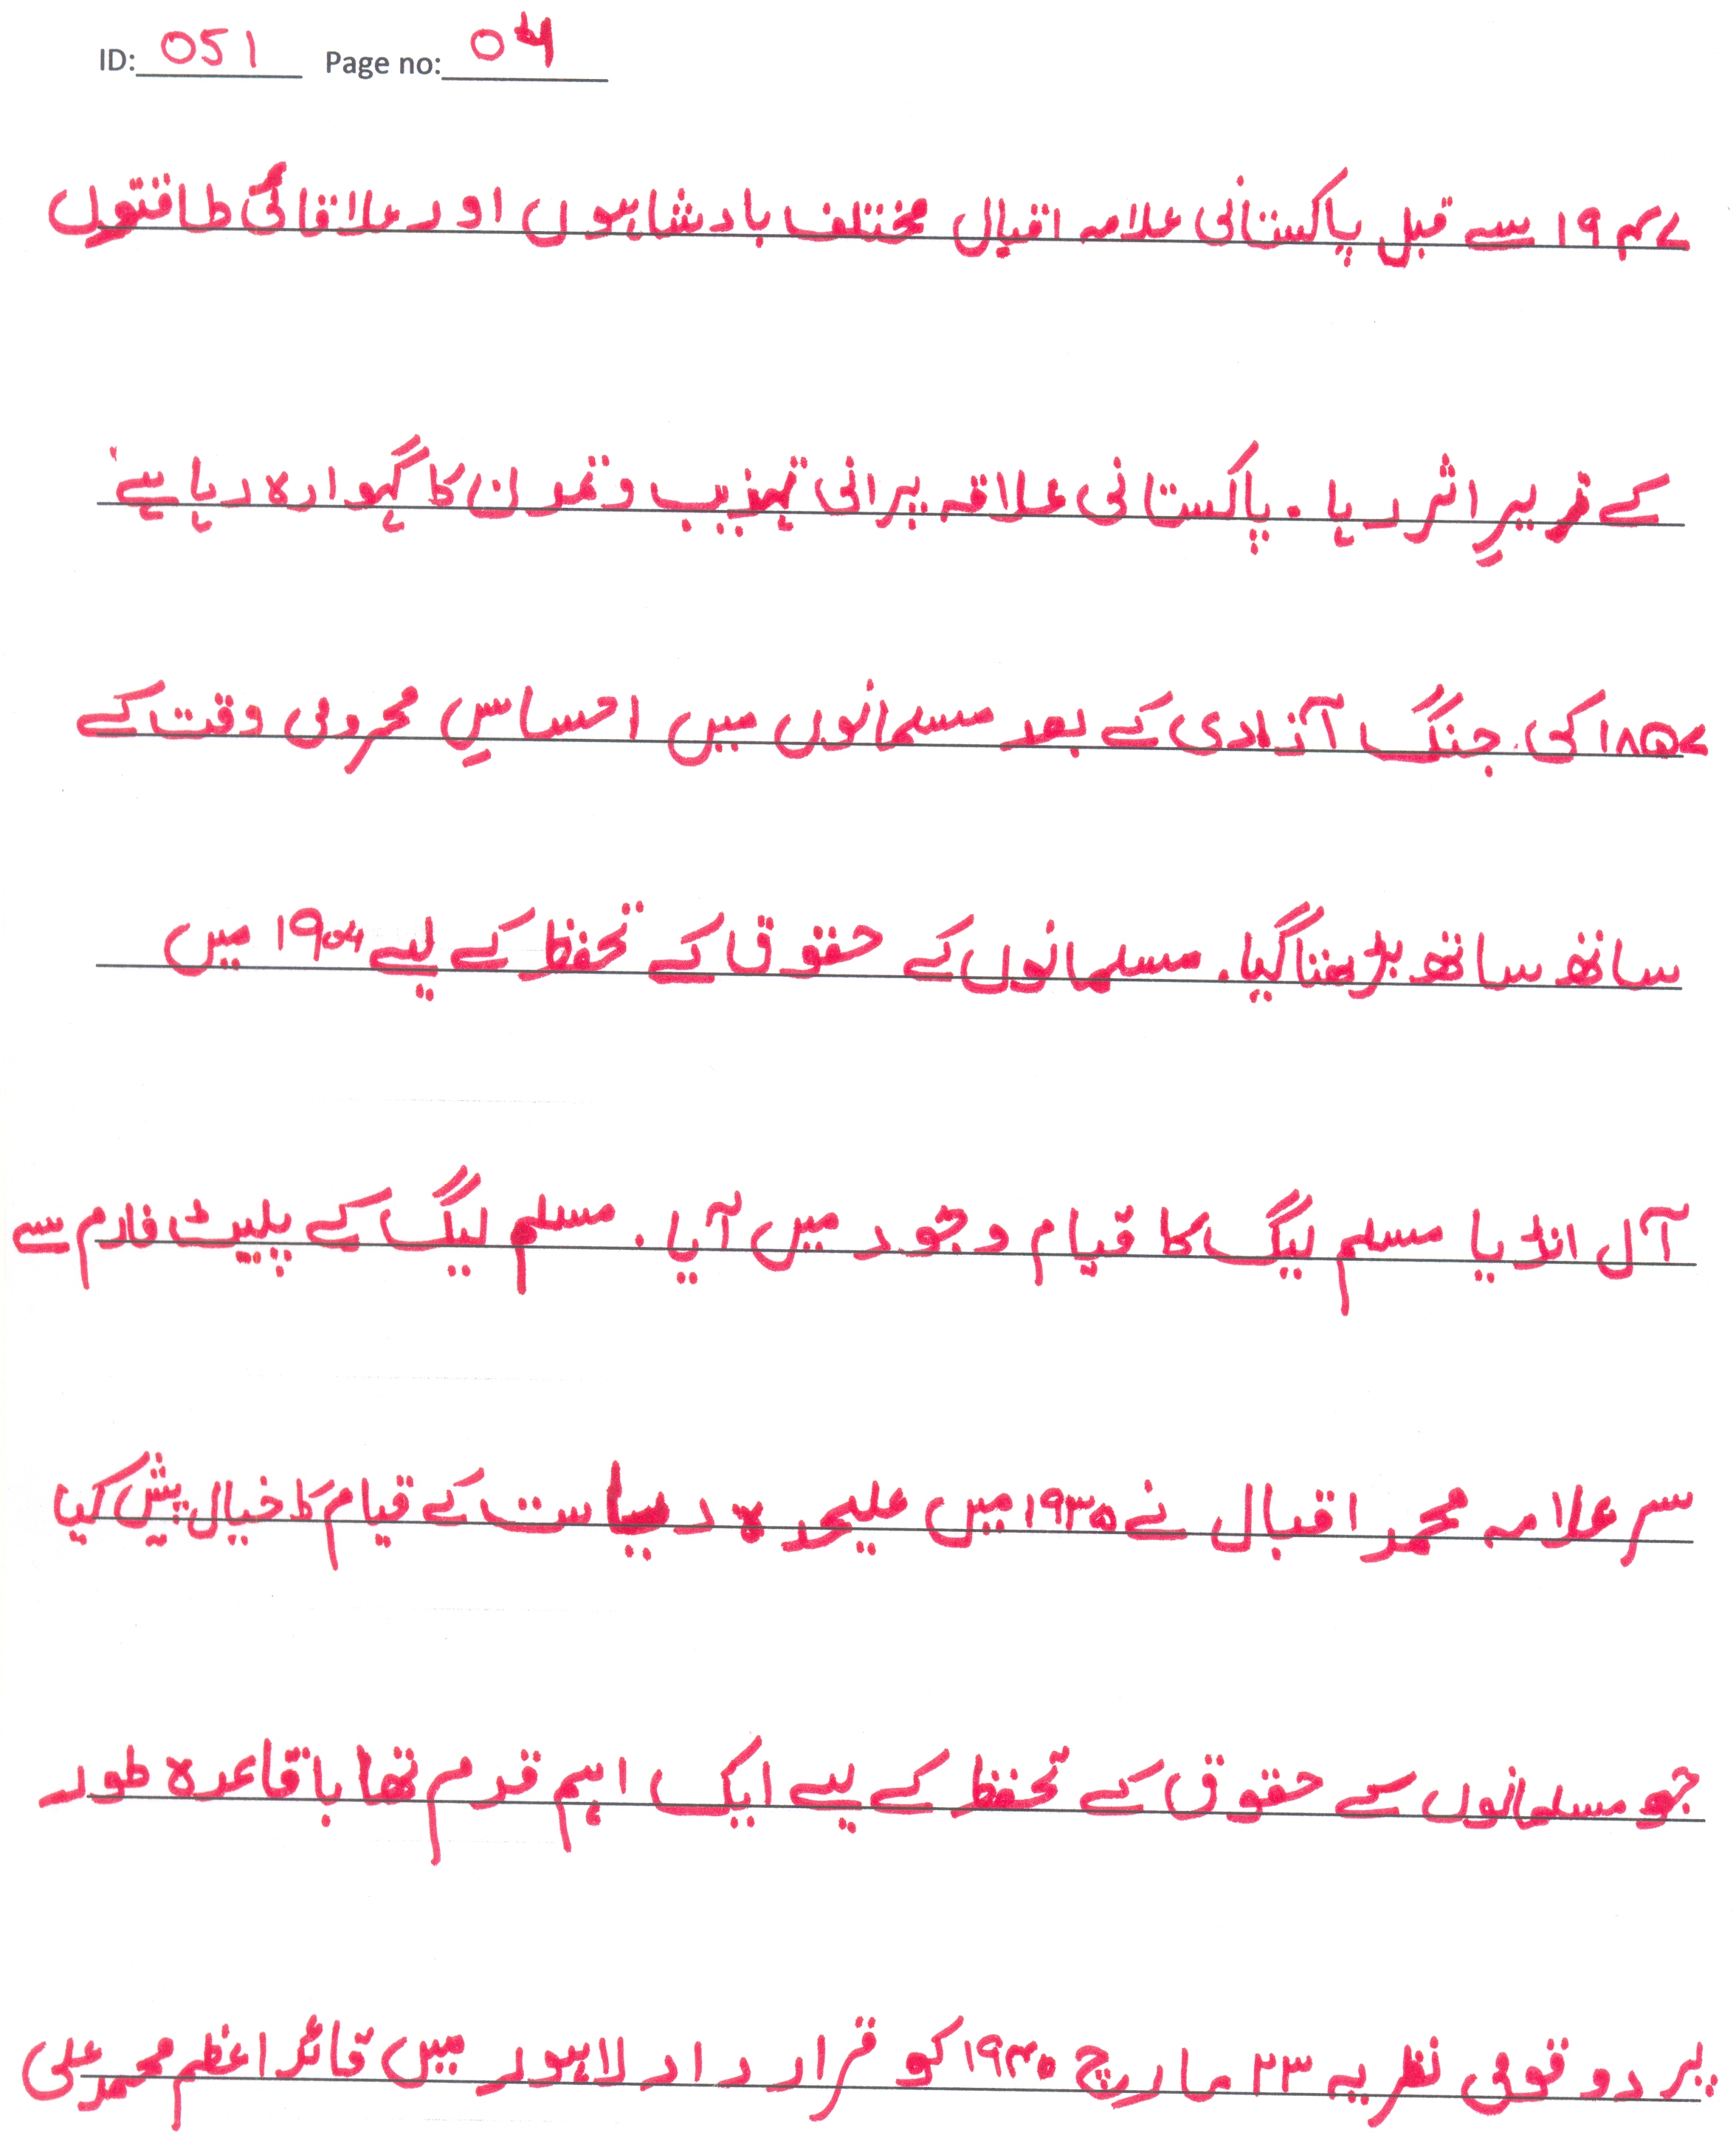 ID: 051 Page no: 04
۱۹۴۷ سے قبل پاکستانی علامہ اقبال مختلف بادشاہوں اور علاقائی طاقتوں
کے تریرِ اثر رہا۔ پاکستانی علاقہ پرانی تہذیب و تمدن کا گہوارہ رہا ہے
۱۸۵۷ کی جنگ آزادی کے بعد مسلمانوں میں احساسِ محرومی وقت کے
ساتھ ساتھ بڑھتا گیا۔ مسلمانوں کے حقوق کے تحفظ کے لیے ۱۹۰۶ میں
آل انڈیا مسلم لیگ کا قیام وجود میں آیا۔ مسلم لیگ کے پلیٹ فارم سے
سر علامہ محمد اقبال نے ۱۹۳۰ میں علیحدہ ریاست کے قیام کا خیال پیش کیا
جو مسلمانوں کے حقوق کے تحفظ کے لیے ایک اہم قدم تھا باقاعدہ طور
پر دو قومی نظریہ ۲۳ مارچ ۱۹۴۰ کو قرار داد لاہور میں قائد اعظم محمد علی